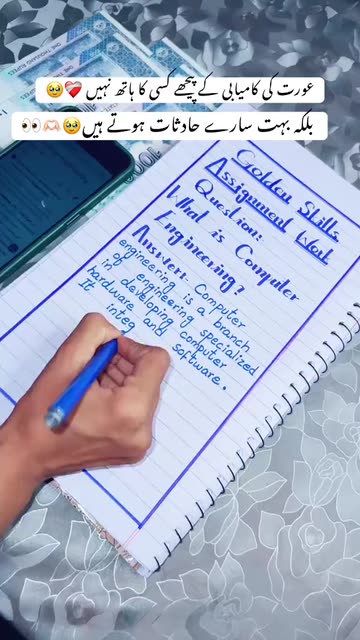 عورت کی کامیابی کے پیچھے کسی کا ہاتھ نہیں ❤️‍🩹🥹
بلکہ بہت سارے حادثات ہوتے ہیں🥹🫶🏻👀
Golden Skills
Assignment Work
Question:
What is Computer
Engineering?
Answer: Computer
engineering is a branch
of engineering specialized
in developing computer
hardware and software.
It integ